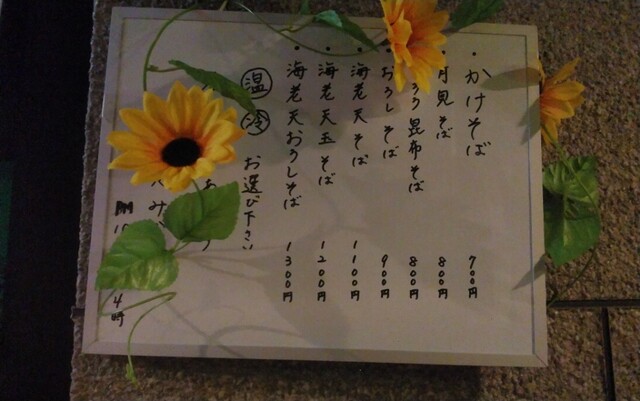 ・かけそば 700円
月見そば 800円
昆布そば 800円
おろしそば 900円
・海老天そば 1100円
・海老天玉そば 1200円
・海老天おろしそば 1300円
温 冷 お選び下さい
4時